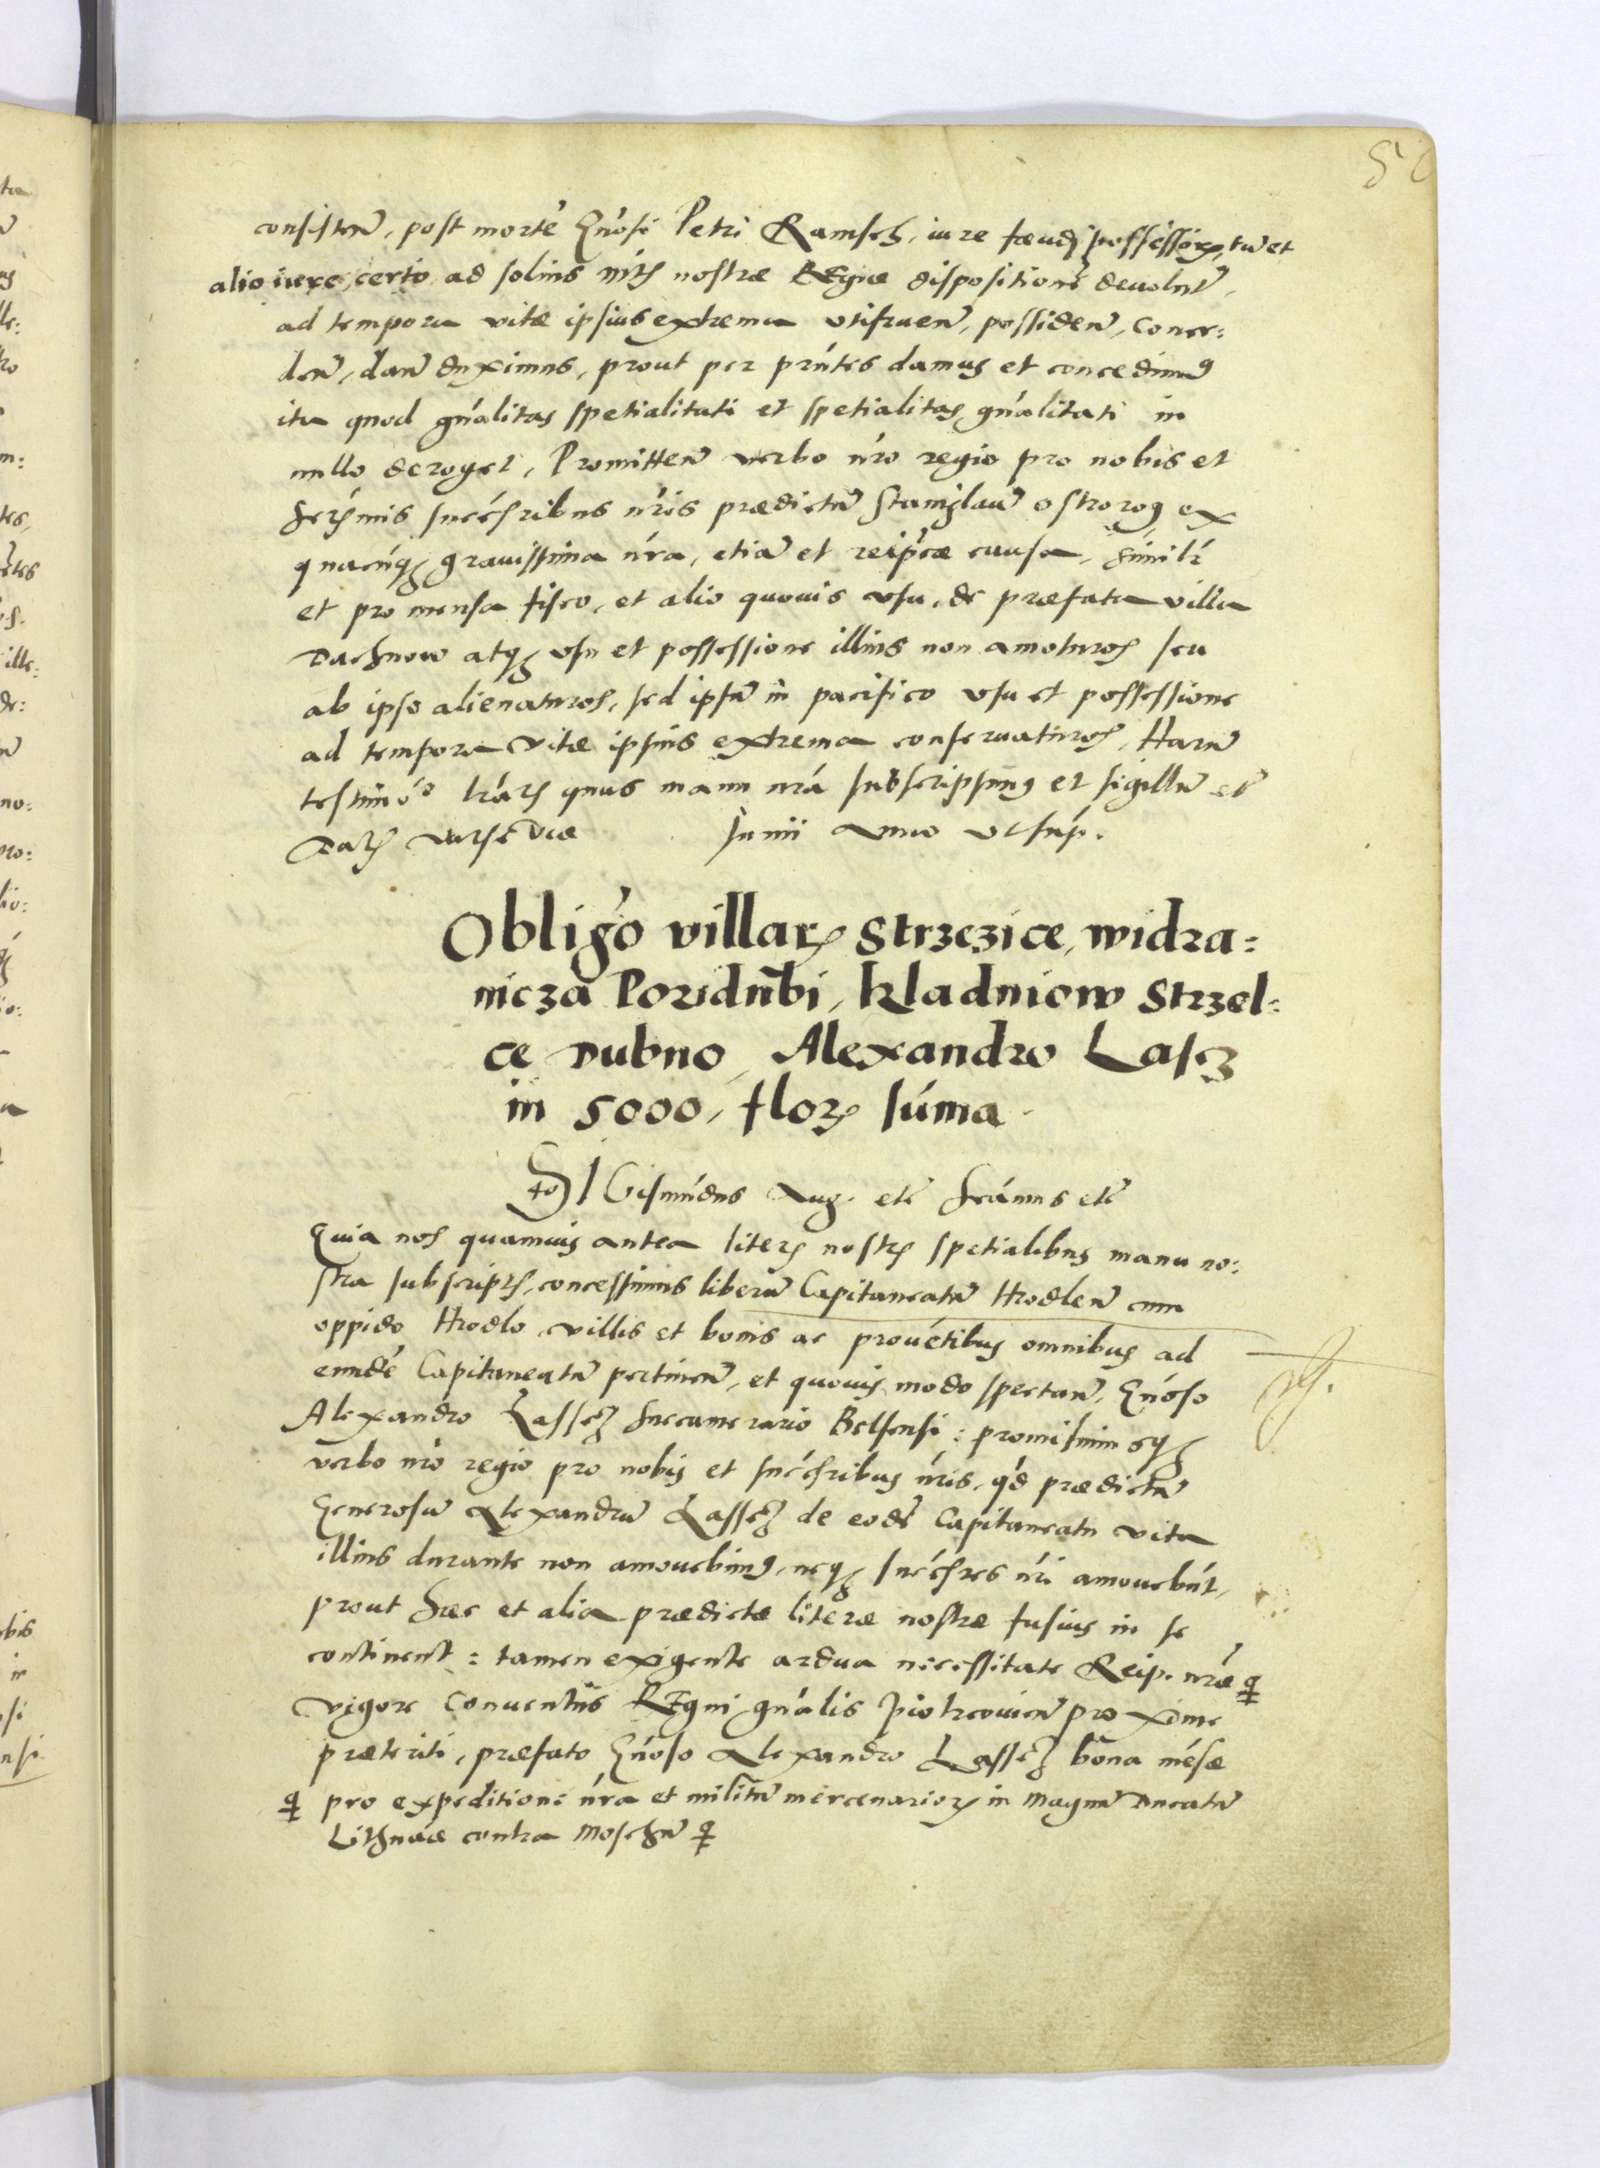 consisten̄, post mortē Gn̄osi Petri Ramsch, iure feudi possessor, tū et
alio iure certo ad solius Mtis nostræ Regiæ dispositionē deuolut̄,
ad tempora vitæ ipsius extrema vtifruen̄, possiden̄, conce:
den̄, dan̄ duximus, prout per prn̄tes damus et concedimus
ita quod gn̄alitas spetialitati et spetialitas gn̄alitati in
nullo deroget, Promitten̄ verbo nr̄o regio pro nobis et
Serēmis succeſribus nr̄is prædictū Stanislaū Ostrorog ex
quacunq grauissima nr̄a, etiā et reip̄cæ causa, simil̄r
et pro mensa fisco, et alio quouis vsu, de præfata villa
Dachnow atq vsu et possessione illius non amoturos seu
ab ipso alienaturos, sed ipsū in pacifico vsu et possessione
ad tempora vitæ ipsius extrema conseruaturos, Harū
testimōo lr̄arꝝ quas manu nr̄a subscripsimus et sigillū et̄
Datꝝ Varsediæ Junii Anno vt sup̄.
Obligō villarꝝ Strzezice, widra-
nicza Poridūbi, kladniow Strzel-
ce Dubno, Alexandro Lascz
in 5000, florꝝ sum̄a.
SIGismūdus Aug. etc̄ Sr̄amus etc̄
Quia nos quamuis antea literꝭ nostrꝭ spetialibus manu no:
stra subscriptꝭ, concessimus liberū Capitaneatū Hrodlen̄ cum
oppido Hrodlo, villis et bonis ac prouētibus omnibus ad
eundē Capitaneatū pertinen̄, et quouis modo spectan̄, Gn̄oso
Alexandro Lasscz Succamerario Belsensi: promisimusq
verbo nr̄o regio pro nobis et succeſribus nr̄is, qd̄ prædictū
Generosū Alexandrū Lasscz de eodē Capitaneatu vita
illius durante non amouebimus, neq succeſres nr̄i amouebūt,
prout hæc et alia prædictæ literæ nostræ fusius in se
continent: tamen exigente ardua necessitate Reip. nr̄æ
vigore Conuentus Regni gn̄alis Piotrcouien̄ proxime
præteriti, præfato Gn̄oso Alexandro Lasscz bona mēsæ
pro expeditione nr̄a et militū mercenariorꝝ in Magnū Ducatū
Lithuaniæ contra Moschū